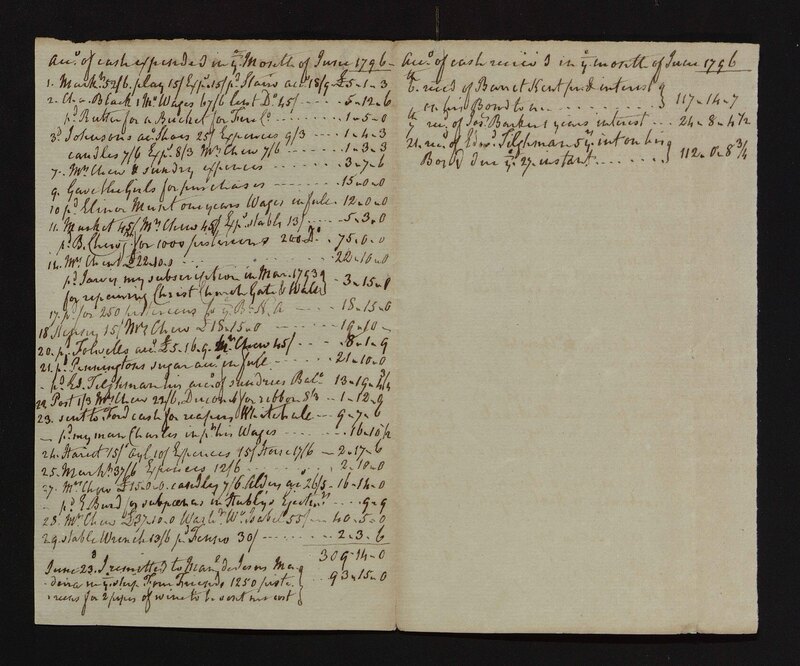 acco. of cash expended in ye. Month of June 1796
1. Markt. 52/6. play 15/ Exps. 15/ pd. Stairs acc. 18/9 £5-1-3
2. Black 1 Mo. Wages 67/6 lent Do. 45/ 5-12-6
pd. Rutter for a Bucket for Fire Co. 1-5-0
3d. Johnsons acc. Shoes 25/ Expences 9/3 1-4-3
candles 7/6 Exps. 8/3 Mrs. Chew 7/6 1-3-3
7. Mrs. Chew & sundry expences 3-7-6
9. Gave the Girls for purchases 15-0-0
10 pd. Elinor one years Wages in full 12-0-0
11. Market 45/ Mrs. Chew 45/ Exps. stable 13/ 5-3-0
pd. B. Chew for 1000 200 Ds. 75-0-0
14. Mrs. Chew £22-10-0 22-10-0
pd. my subscription in Mar. 1793
for repairing Christ Church Gate & Wall 3-15-0
17. pd. for 250 18-15-0
18 15/ Mrs. Chew £18-15-0 19-10-
20. pd. Folwells acc. £5-16-9 Mrs. Chew 45/ 8-1-9
21. pd. Penningtons sugar acc. in full 21-10-0
pd. Ed. Tilghman his acco. of sundries Bale. 13-19-
22. Post 1/3 Mrs. Chew 22/6 for ribbon 8/3 1-12-9
23. sent to Ford cash for reapers Whitehall 9-7-6
- pd. my man Charles in pt. his Wages 16-10½
24. 15/ 10/ Expences 15/ Horse 17/6 2-17-6
25. Markt. 37/6 Expences 12/6 2-10-0
27. Mrs. Chew £15-0-0. candles 7/6 26/5 16-14-0
pd. E. Burd for subpoenas in 9-9
28. Mrs. Chew £37-10-0 Isabel 55/ 40-5-0
29. stable Wrench 13/6 pd. 30/ 2-3-6
309-14-0
June 23d. I remitted to de Ma-
deira in ye. ship Four Friends 1250
for 2 pipes of wine to be sent me cost 93-15-0
acco. of cash receiv'd in ye. month of June 1796
6. recd. of Barnet Kent & interest
on his Bond to me 117-14-7
recd. of Jos. Barker 1 years interest 24-8-4½
21. rec. of Edwd. Tilghman 5 int on his
Bond due ye. 27 instant 112-0-8¾